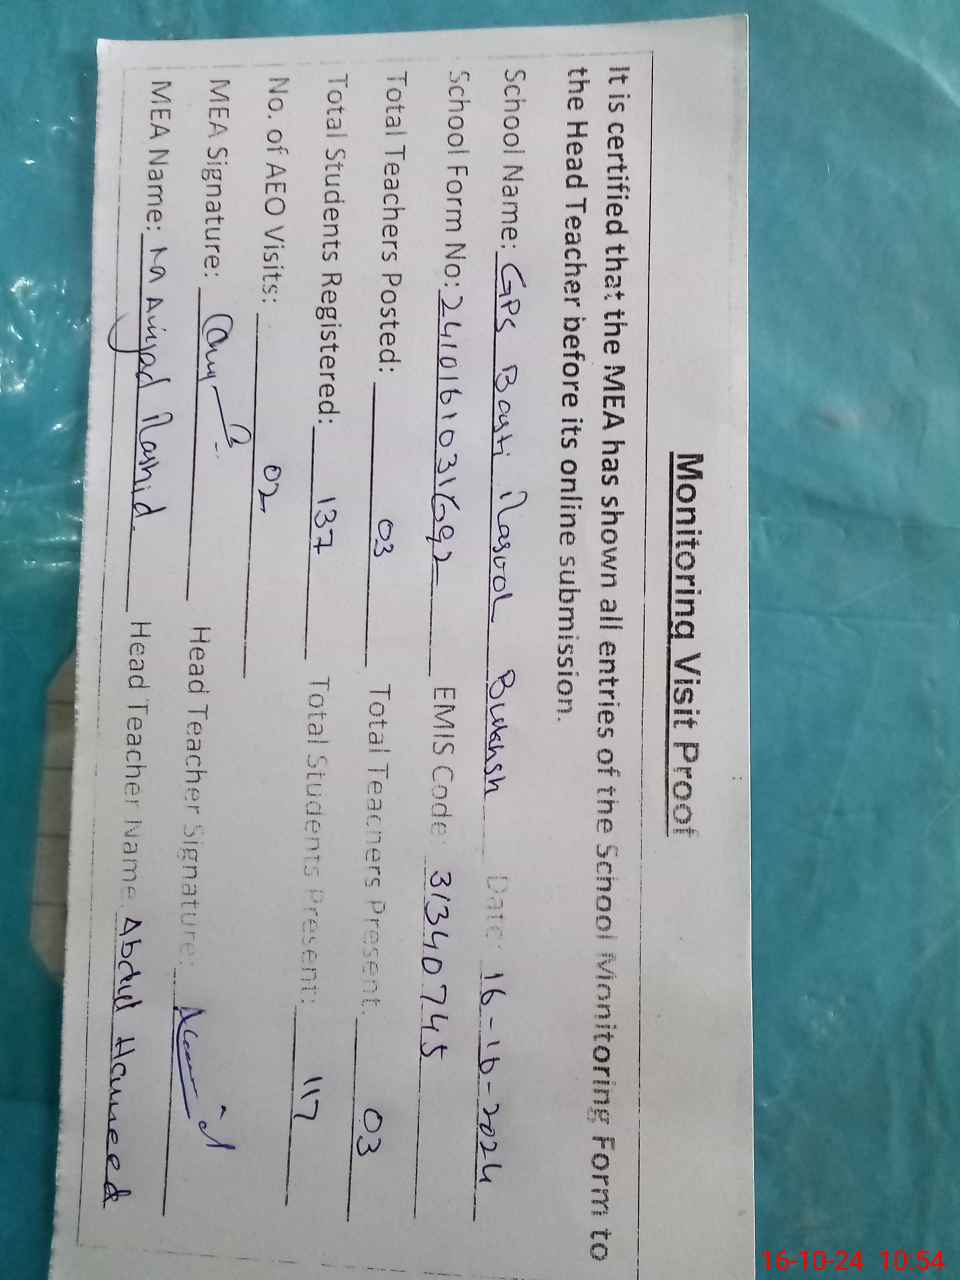 Monitoring Visit Proof
It is certified that the MEA has shown all entries of the School Monitoring Form to
the Head Teacher before its online submission.
School Name: GPS Basti Rasool Bukhsh Date: 16-10-2024
School Form No: EMIS Code: 31340745
Total Teachers Posted: 03 Total Teachers Present: 03
Total Students Registered: 137 Total Students Present: 117
No. of AEO Visits: 02
MEA Signature: Head Teacher Signature:
MEA Name: M Amjad Rashid Head Teacher Name Abdul Hameed
16-10-24 10:54